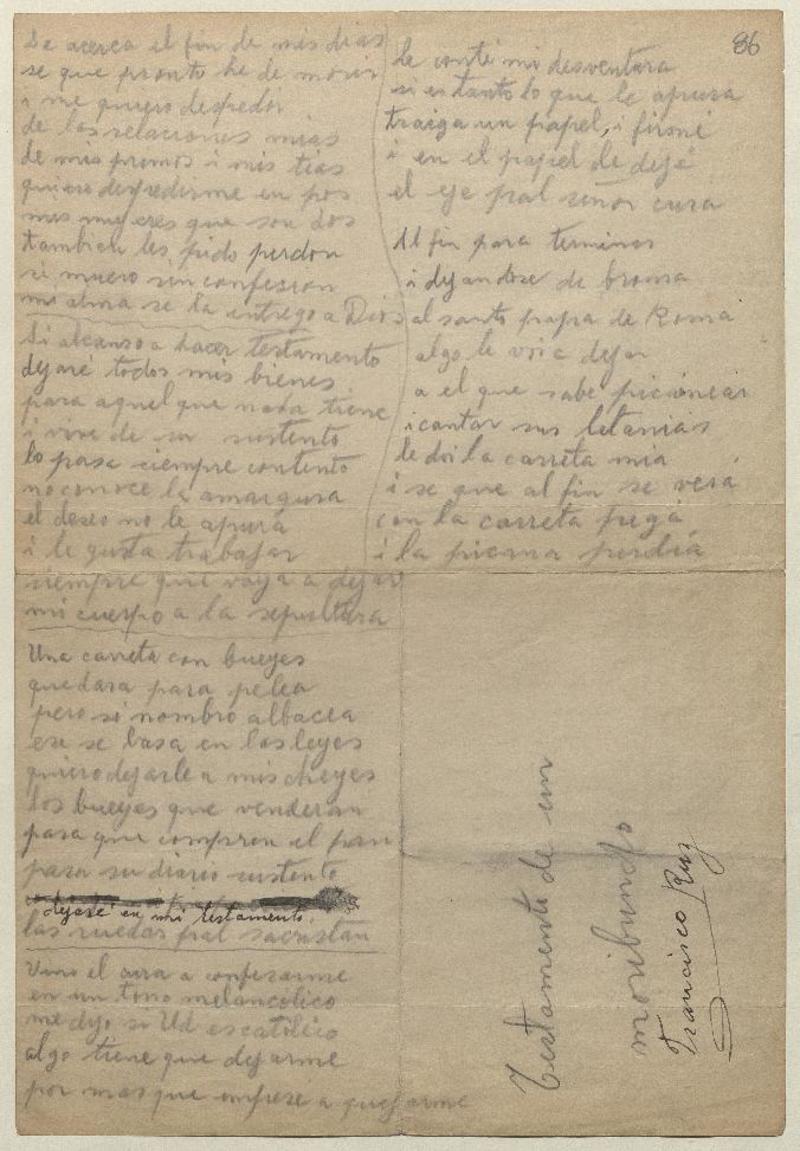 86
Se acerca el fin de mis dias
se que pronto he de morir
i me quiero despedir
de las relaciones mias
de mis primos i mis tias
quiero despedirme en pos
mis mujeres que son dos
tambien les pido perdon
si muero sin confesion
mi alma se la entrego a Dios
Si alcanso a hacer testamento
dejaré todos mis bienes
para aquel que nada tiene
i vive de su sustento
lo pasa siempre contento
no conoce la amargura
el deseo no le apura
i le gusta trabajar
siempre que vaya a dejar
mi cuerpo a la sepultura
Una carreta con bueyes
quedara para pelea
pero si nombro albacea
ese se basa en las leyes
quiero dejarle a mis cheyes
los bueyes que venderan
para que compren el pan
para su diario sustento
dejaré en mi testamento
las ruedas pal sacristan
Vino el cura a confesarme
en un tono melancólico
me dijo si Ud es católico
algo tiene que dejarme
por mas que empese a quejarme
le conté mi desventura
si es tanto lo que le apura
traiga un papel, i firmé
i en el papel le dejé
el eje pal señor cura
Al fin para terminar
i dejandose de broma
al santo papa de Roma
algo le voi a dejar
a el que sabe picanear
i cantar sus letanias
le doi la carreta mia
i se que al fin se verá
con la carreta pegá
i la picana perdía
Testamento de un
moribundo
Francisco Ruz